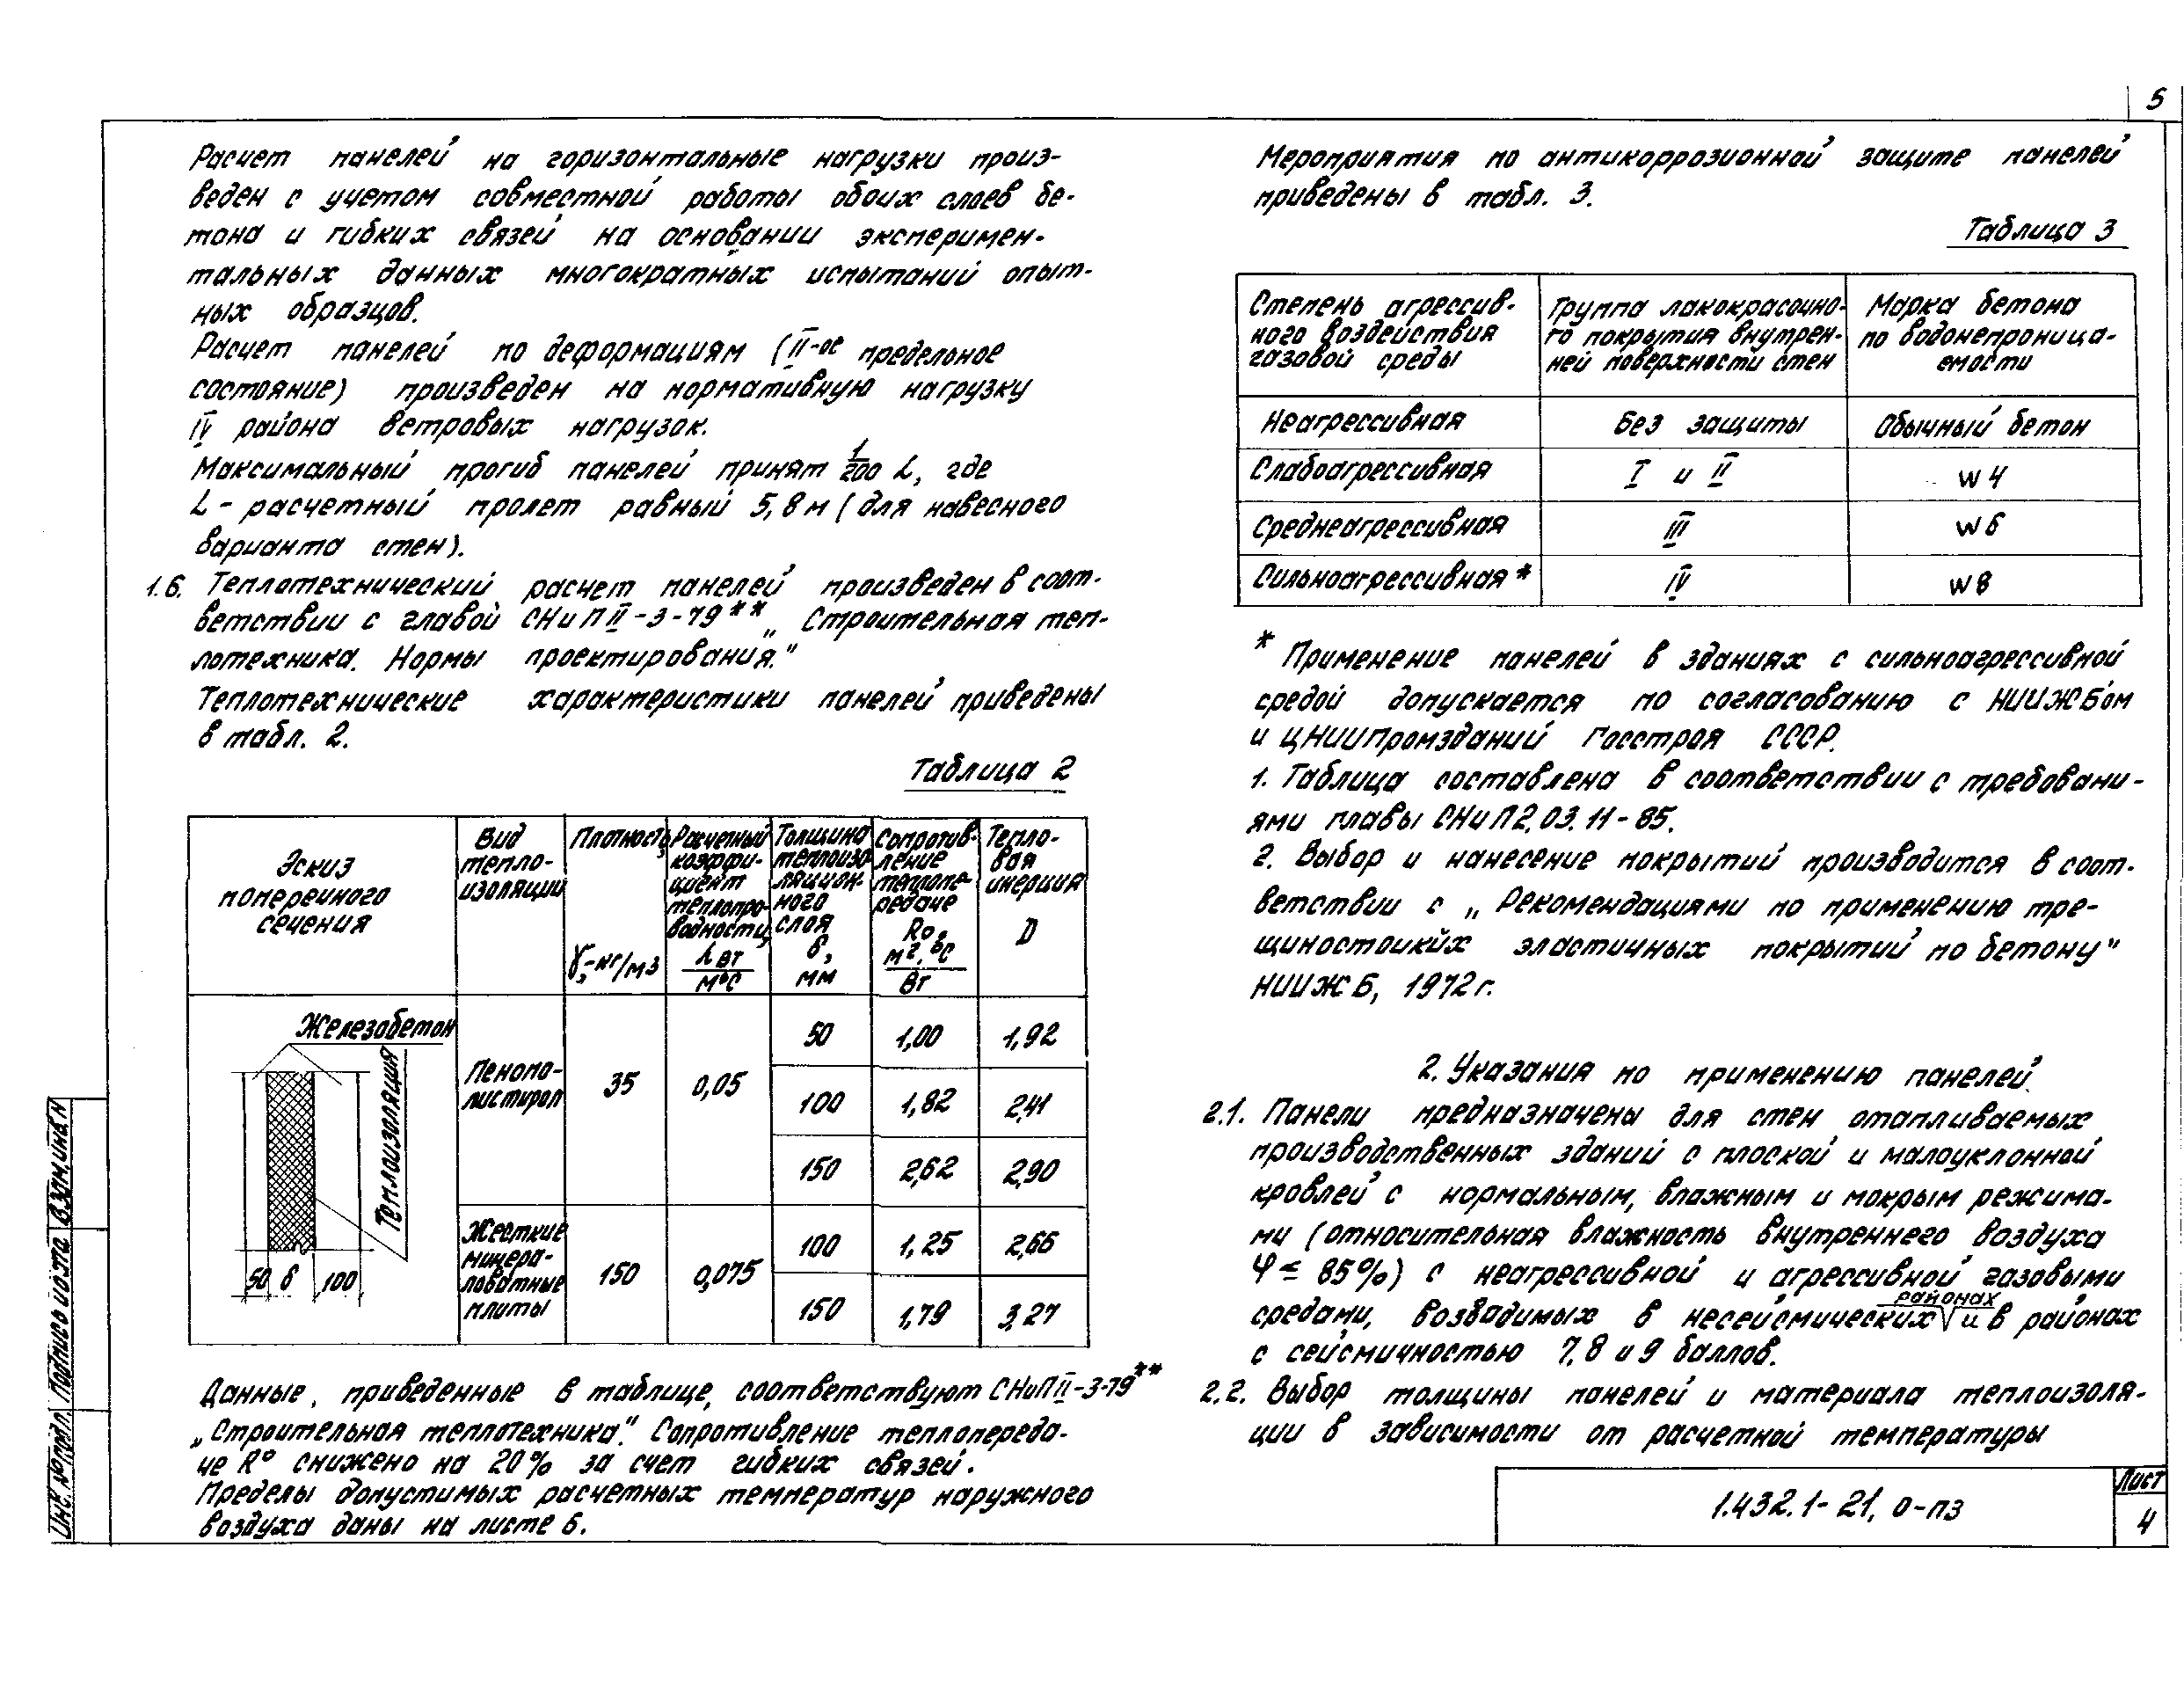 5
Расчет панелей на горизонтальные нагрузки произ-
веден с учетом совместной работы обоих слоев бе-
тона и гибких связей на основании эксперимен-
тальных данных многократных испытаний опыт-
ных образцов.
Расчет панелей по деформациям (II-ое предельное
состояние) произведен на нормативную нагрузку
IV района ветровых нагрузок.
Максимальный прогиб панелей принят 1/200 L, где
L - расчетный пролет равный 5,8 м (для навесного
варианта стен).
1.6. Теплотехнический расчет панелей произведен в соот-
ветствии с главой СНиП II-3-79** „Строительная теп-
лотехника. Нормы проектирования."
Теплотехнические характеристики панелей приведены
в табл. 2.
Таблица 2
Эскиз
поперечного
сечения
Вид
тепло-
изоляции
Плотность,
γ,-кг/м3
Расчетный
коэффи-
циент
теплопро-
водности,
λ Вт
м°С
Толщина
теплоизо
ляцион-
ного
слоя
δ,
мм
Сопротив-
ление
теплопе-
редаче
Ro,
м2.°С
Вт
Тепло-
вая
инерция
D
Железобетон
Теплоизоляция
50 δ 100
Пенопо-
листирол
35 0,05
50 1,00 1,92
100 1,82 2,41
150 2,62 2,90
Жесткие
минера-
ловатные
плиты
150 0,075
100 1,25 2,66
150 1,79 3,27
Данные, приведенные в таблице, соответствуют СНиП II-3-79**
„Строительная теплотехника". Сопротивление теплопереда-
че R° снижено на 20% за счет гибких связей.
Пределы допустимых расчетных температур наружного
воздуха даны на листе 6.
Мероприятия по антикоррозионной защите панелей
приведены в табл. 3.
Таблица 3
Степень агрессив-
ного воздействия
газовой среды
Группа лакокрасочно-
го покрытия внутрен-
ней поверхности стен
Марка бетона
по водонепроница-
емости
Неагрессивная Без защиты Обычный бетон
Слабоагрессивная I и II W4
Среднеагрессивная III W6
Сильноагрессивная * IV W8
* Применение панелей в зданиях с сильноагрессивной
средой допускается по согласованию с НИИЖБом
и ЦНИИПромзданий Госстроя СССР.
1. Таблица составлена в соответствии с требовани-
ями главы СНиП 2.03.11-85.
2. Выбор и нанесение покрытий производится в соот-
ветствии с „Рекомендациями по применению тре-
щиностойких эластичных покрытий по бетону"
НИИЖБ, 1972 г.
2. Указания по применению панелей.
2.1. Панели предназначены для стен отапливаемых
производственных зданий с плоской и малоуклонной
кровлей с нормальным, влажным и мокрым режима-
ми (относительная влажность внутреннего воздуха
φ ≤ 85%) с неагрессивной и агрессивной газовыми
средами, возводимых в несейсмических районах и в районах
с сейсмичностью 7, 8 и 9 баллов.
2.2. Выбор толщины панелей и материала теплоизоля-
ции в зависимости от расчетной температуры
1.432.1-21, 0-ПЗ
Лист
4
Инв. № подл. Подпись и дата Взам. инв. N